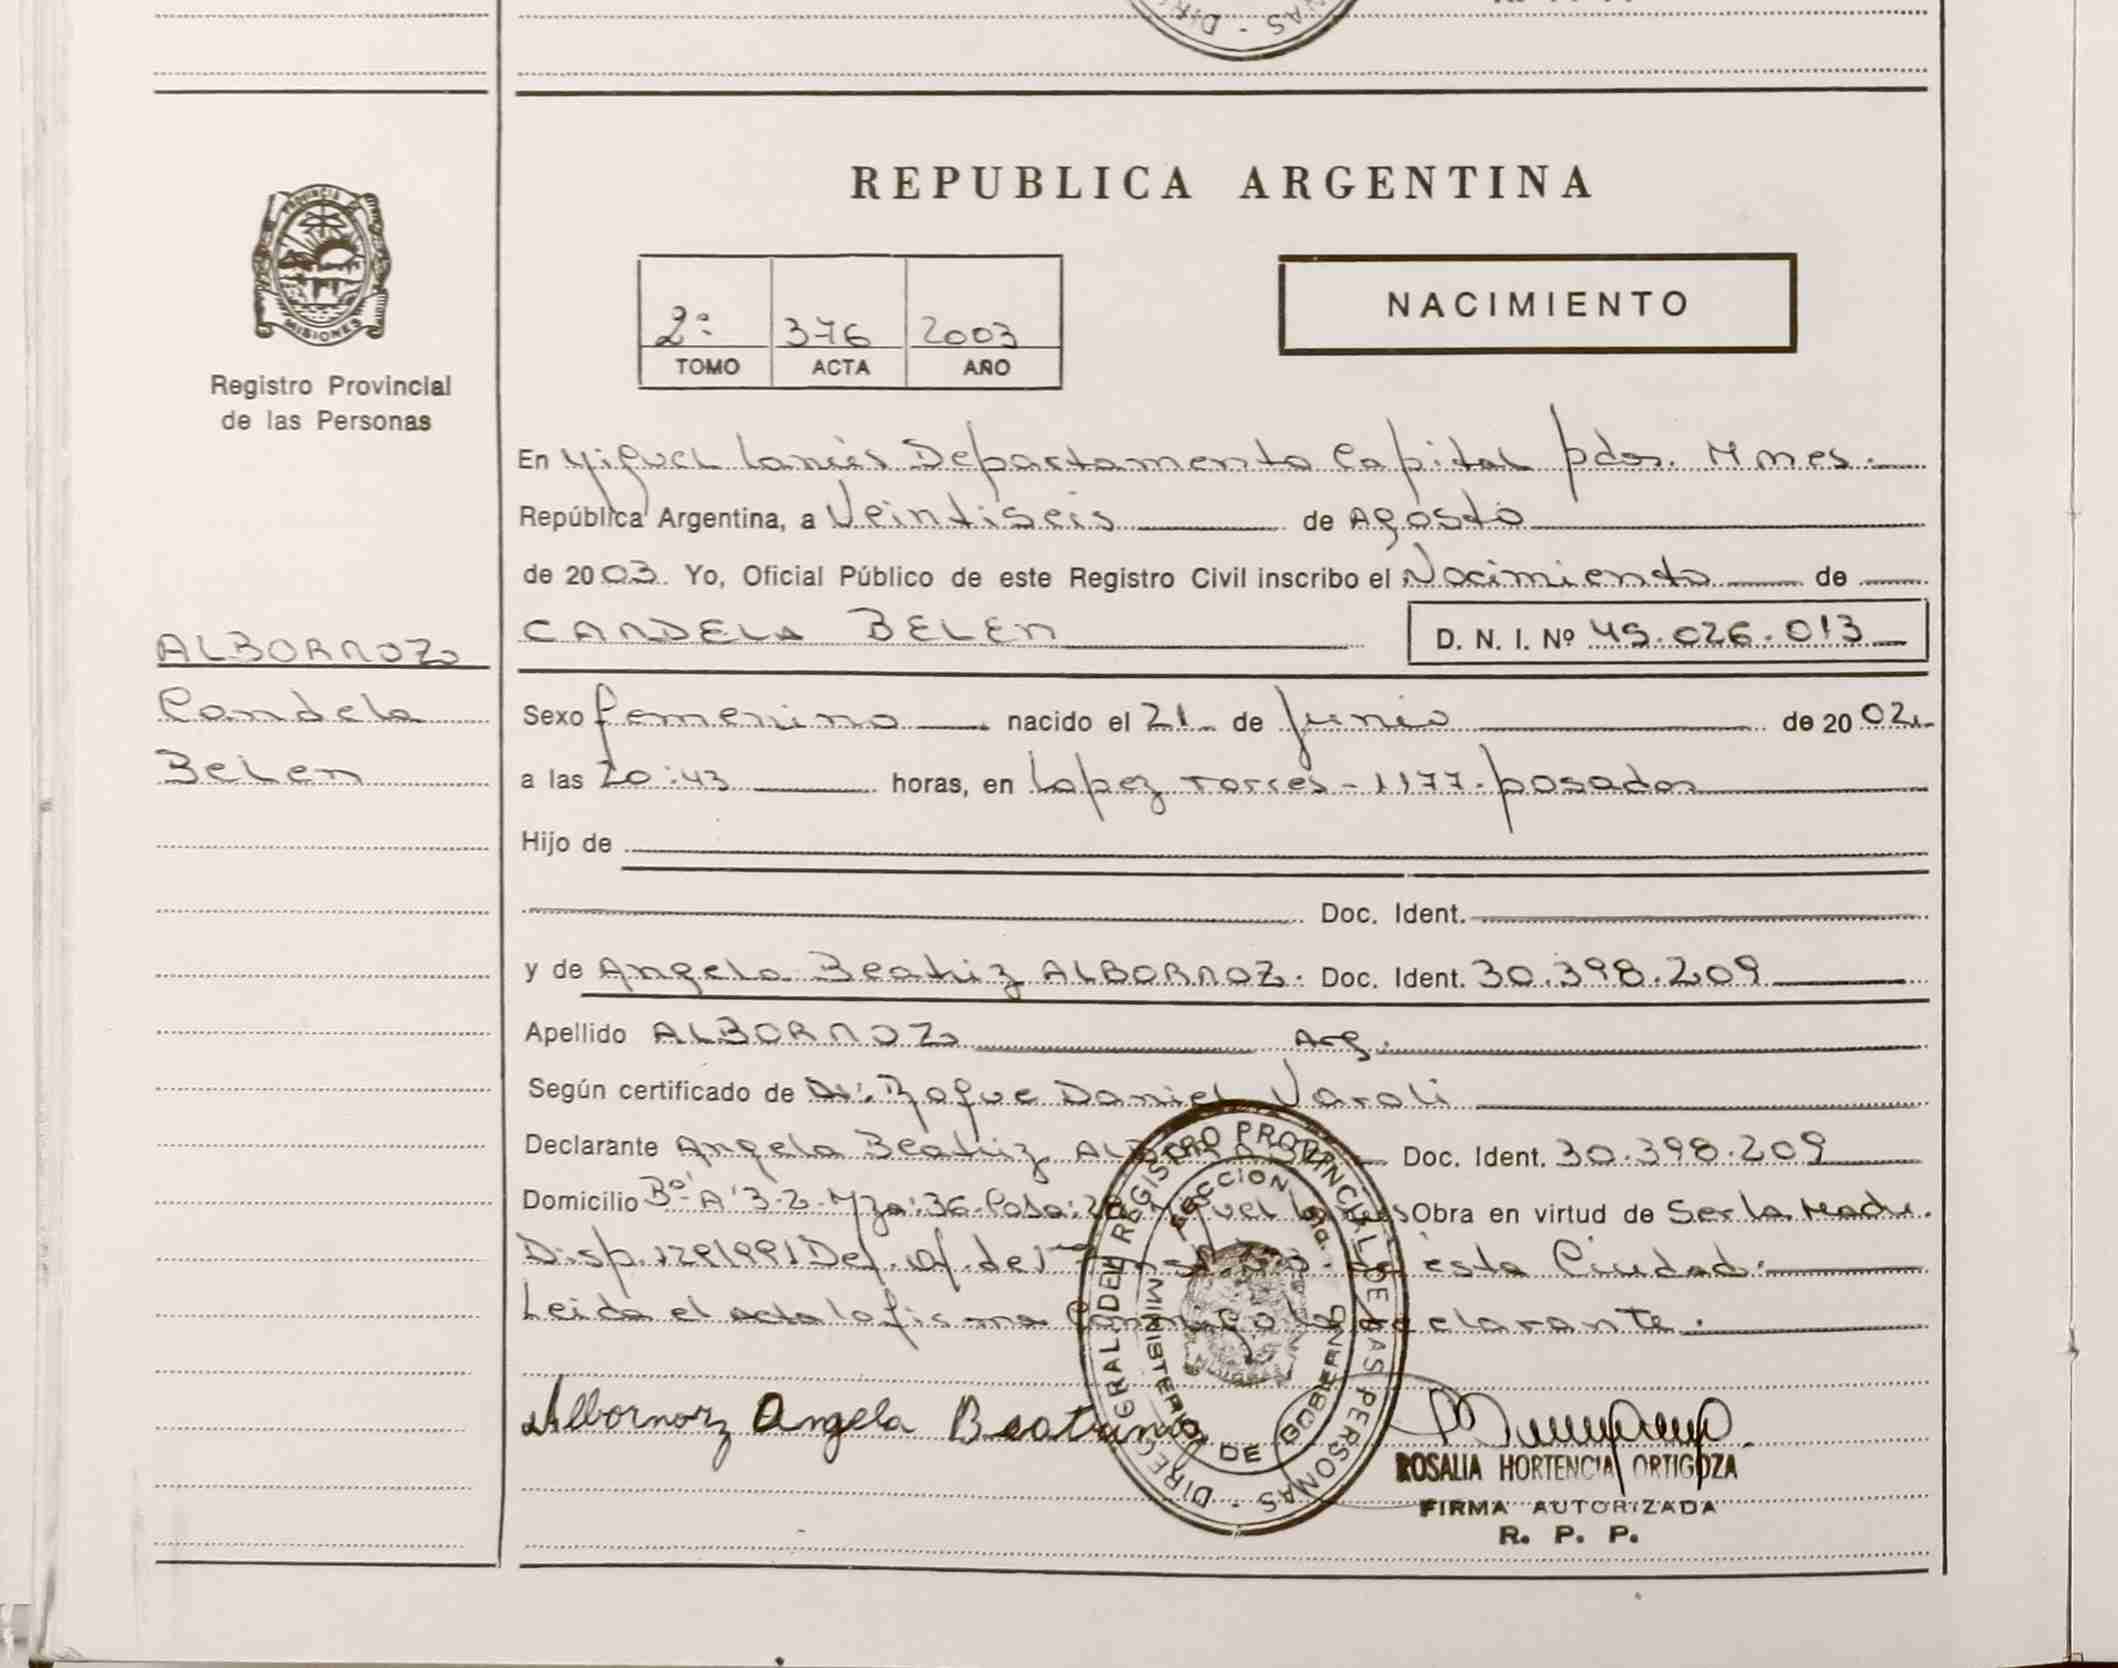 REPUBLICA ARGENTINA
PROVINCIA DE
MISIONES
Registro Provincial
de las Personas
2º 376 2003
TOMO ACTA AÑO
NACIMIENTO
En Miguel Lanús Departamento Capital pdas. Mnes.
República Argentina, a Veintiseis de Agosto
de 2003. Yo, Oficial Público de este Registro Civil inscribo el Nacimiento de
CANDELA BELEN D. N. I. Nº 45.026.013
ALBORNOZ
Candela
Belen
Sexo femenino nacido el 21 de Junio de 2002
a las 20:43 horas, en Lopez Torres - 1177. posadas
Hijo de
Doc. Ident.
y de Angela Beatriz ALBORNOZ. Doc. Ident. 30.398.209
Apellido ALBORNOZ Arg.
Según certificado de Dr. Roque Daniel Varoli
Declarante Angela Beatriz ALBORNOZ Doc. Ident. 30.398.209
Domicilio Bº "A" 3-2-Mza: 36-Casa: Miguel Lanús Obra en virtud de Ser la Madre.
Disp. Def. de esta Ciudad.
Leida el acta la firma Conmigo la declarante.
Albornoz Angela Beatriz
DIREC. GRAL. DEL REGISTRO PROVINCIAL DE LAS PERSONAS
MINISTERIO DE GOBIERNO
ROSALIA HORTENCIA ORTIGOZA
FIRMA AUTORIZADA
R. P. P.